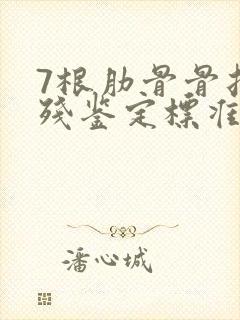 7根肋骨骨
残鉴定标准
潘心城